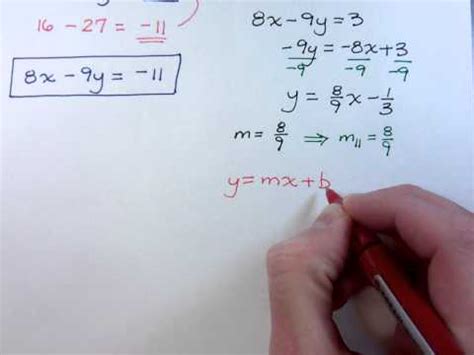 16 - 27 = -11
8x - 9y = -11
8x - 9y = 3
-9y = -8x + 3
-9 -9 -9
y = 8/9 x - 1/3
m = 8/9 ⇒ m∥ = 8/9
y = mx + b